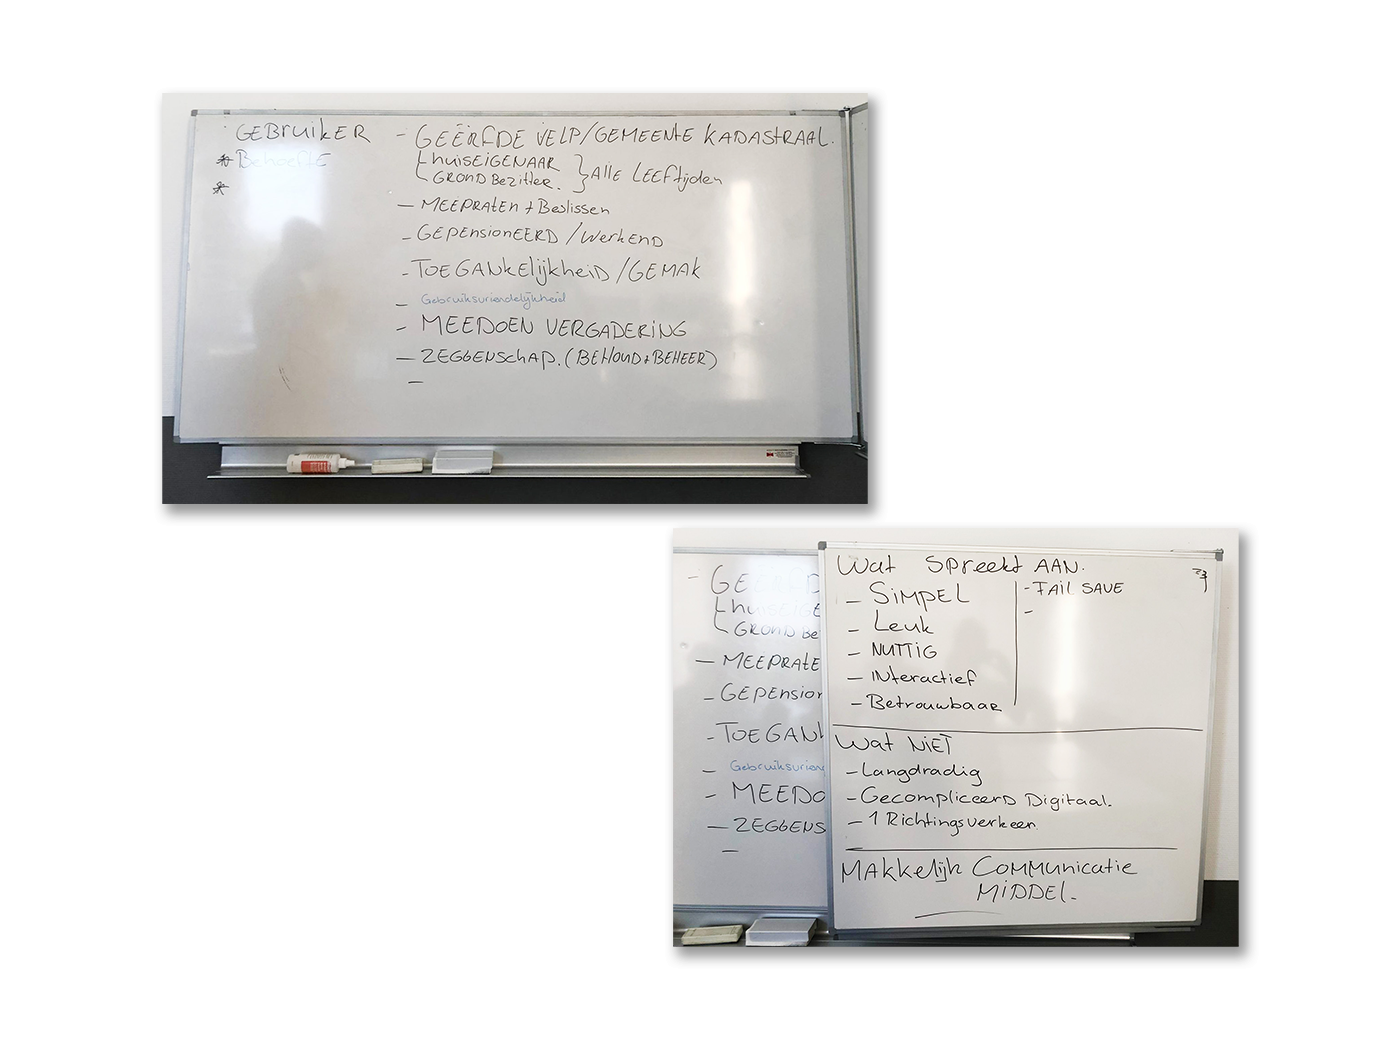 GEBRUIKER
* BEHOEFTE
*
- GEËRFDE VELP/GEMEENTE KADASTRAAL.
HUISEIGENAAR
GRONDBEZITTER. } ALLE LEEFTIJDEN
- MEEPRATEN + BESLISSEN
- GEPENSIONEERD / WERKEND
- TOEGANKELIJKHEID / GEMAK
- Gebruiksvriendelijkheid
- MEEDOEN VERGADERING
- ZEGGENSCHAP. (BEHOUD + BEHEER)
-
HUISEIGE
GROND BE
- MEEPRATE
- GEPENSION
- TOEGANK
- Gebruiksvrien
- MEEDO
- ZEGGENS
-
Wat SPREEKT AAN.
- SIMPEL
- Leuk
- NUTTIG
- INteractief
- Betrouwbaar
- FAIL SAVE
-
Wat NIET
- Langdradig
- Gecompliceerd Digitaal.
- 1 Richtingsverkeer.
MAKKELIJK COMMUNICATIE
MIDDEL.